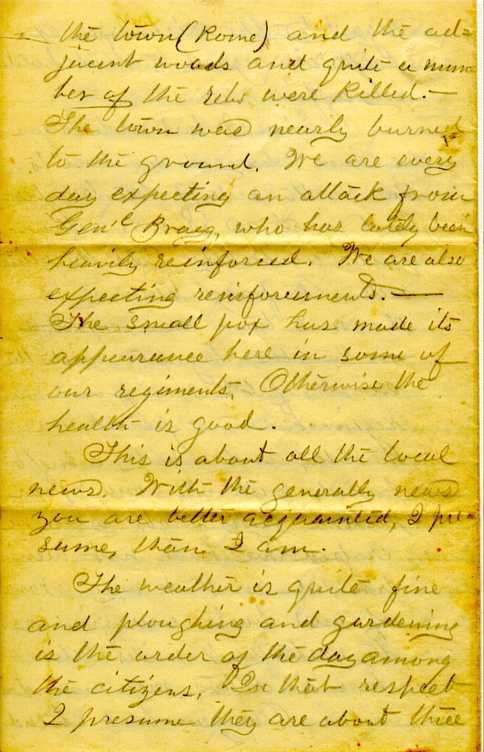 the town (Rome) and the ad=
jacent woods and quite a num
ber of the rebs were killed.—
The town was nearly burned
to the ground. We are every
day expecting an attack from
Gen'l Bragg, who has lately been
heavily reinforced. We are also
expecting reinforcements.—
The small pox has made its
appearance here in some of
our regiments, Otherwise the
health is good.
This is about all the local
news. With the generally news
you are better acquainted, I pre
sume, than I am.
The weather is quite fine
and ploughing and gardening
is the order of the day among
the citizens. In that respect
I presume they are about three